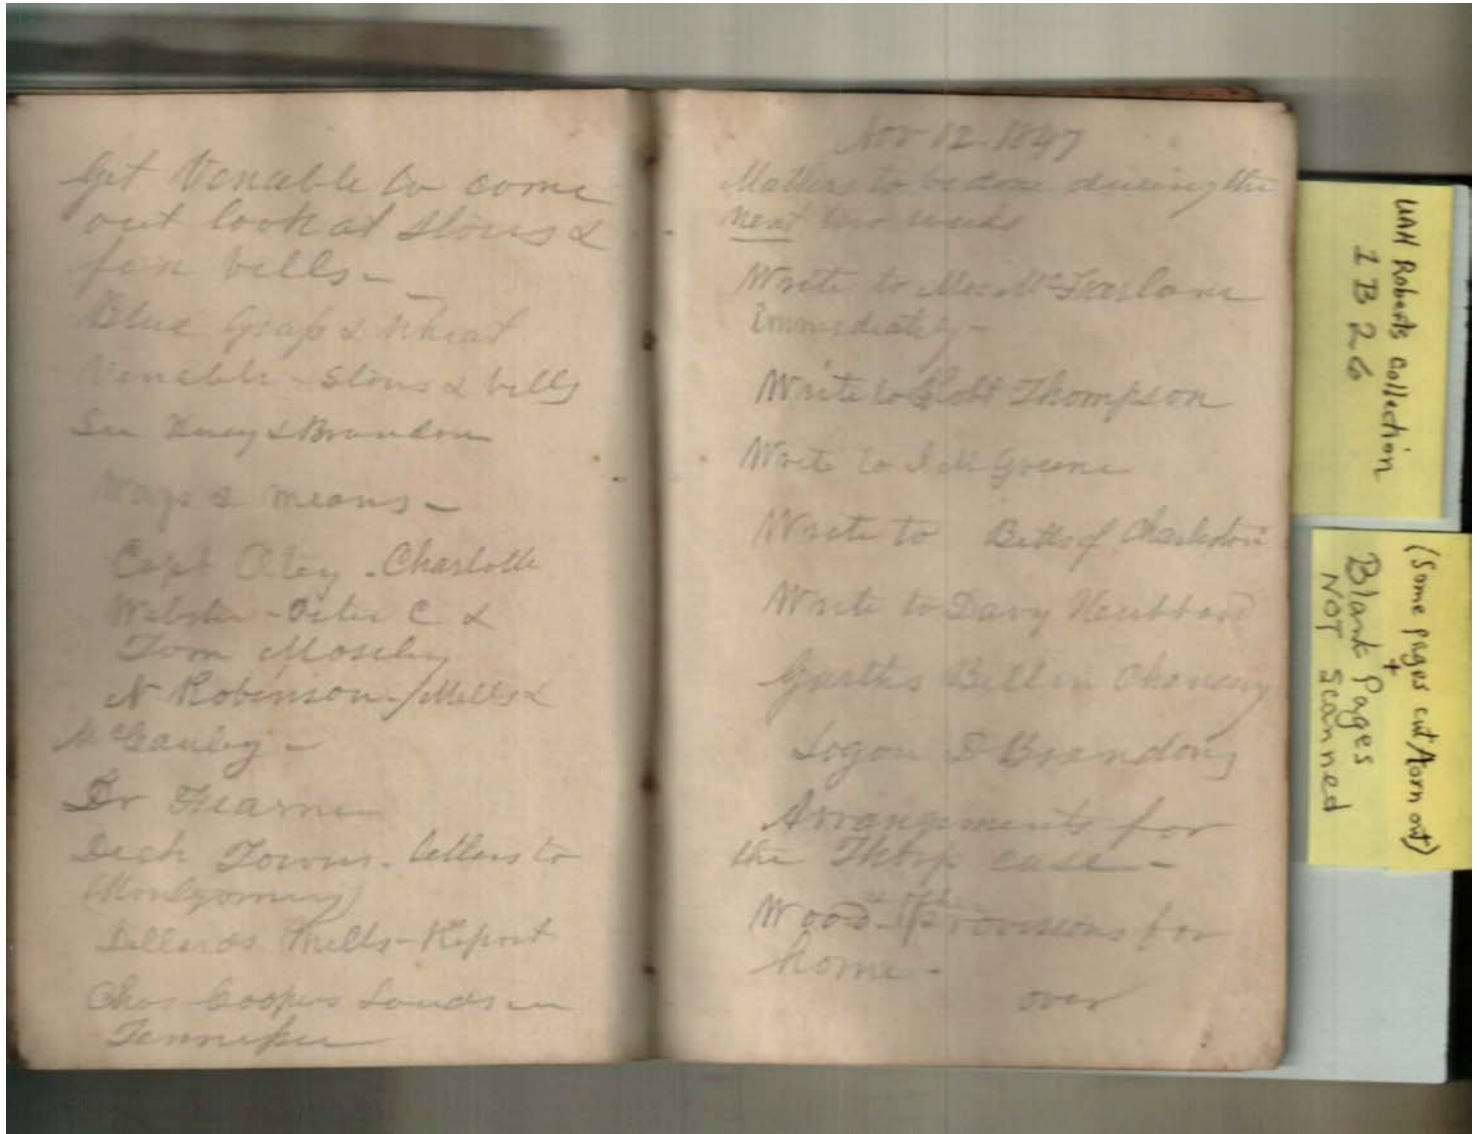 Get Venable to come
out look at stoves &
fix bells -
Blue Grass & Wheat
Venable - Stoves & bells
See & Brandon
Ways & means -
Capt Otey - Charlotte
Webster - Peter C &
Tom Moseley
N Robinson - Mills &
McGauley -
Dr Fearne
Dech Towns. letters to
(Montgomery)
Dellards Mills - Report
Chas Coopers Lands in
Tennessee
Nov 12 - 1847
Matters to be done during the
next two weeks
Write to McFarlane
immediately -
Write to Robt Thompson
Write to Greene
Write to Betts of Charleston
Write to Davy Hubbard
Garths Bill in Chancery
Logan & Brandons
Arrangements for
the Thorp case -
Wood - Provisions for
home -
over
UAH Roberts Collection
1 B 26
(Some pages cut/torn out)
+
Blank Pages
NOT Scanned